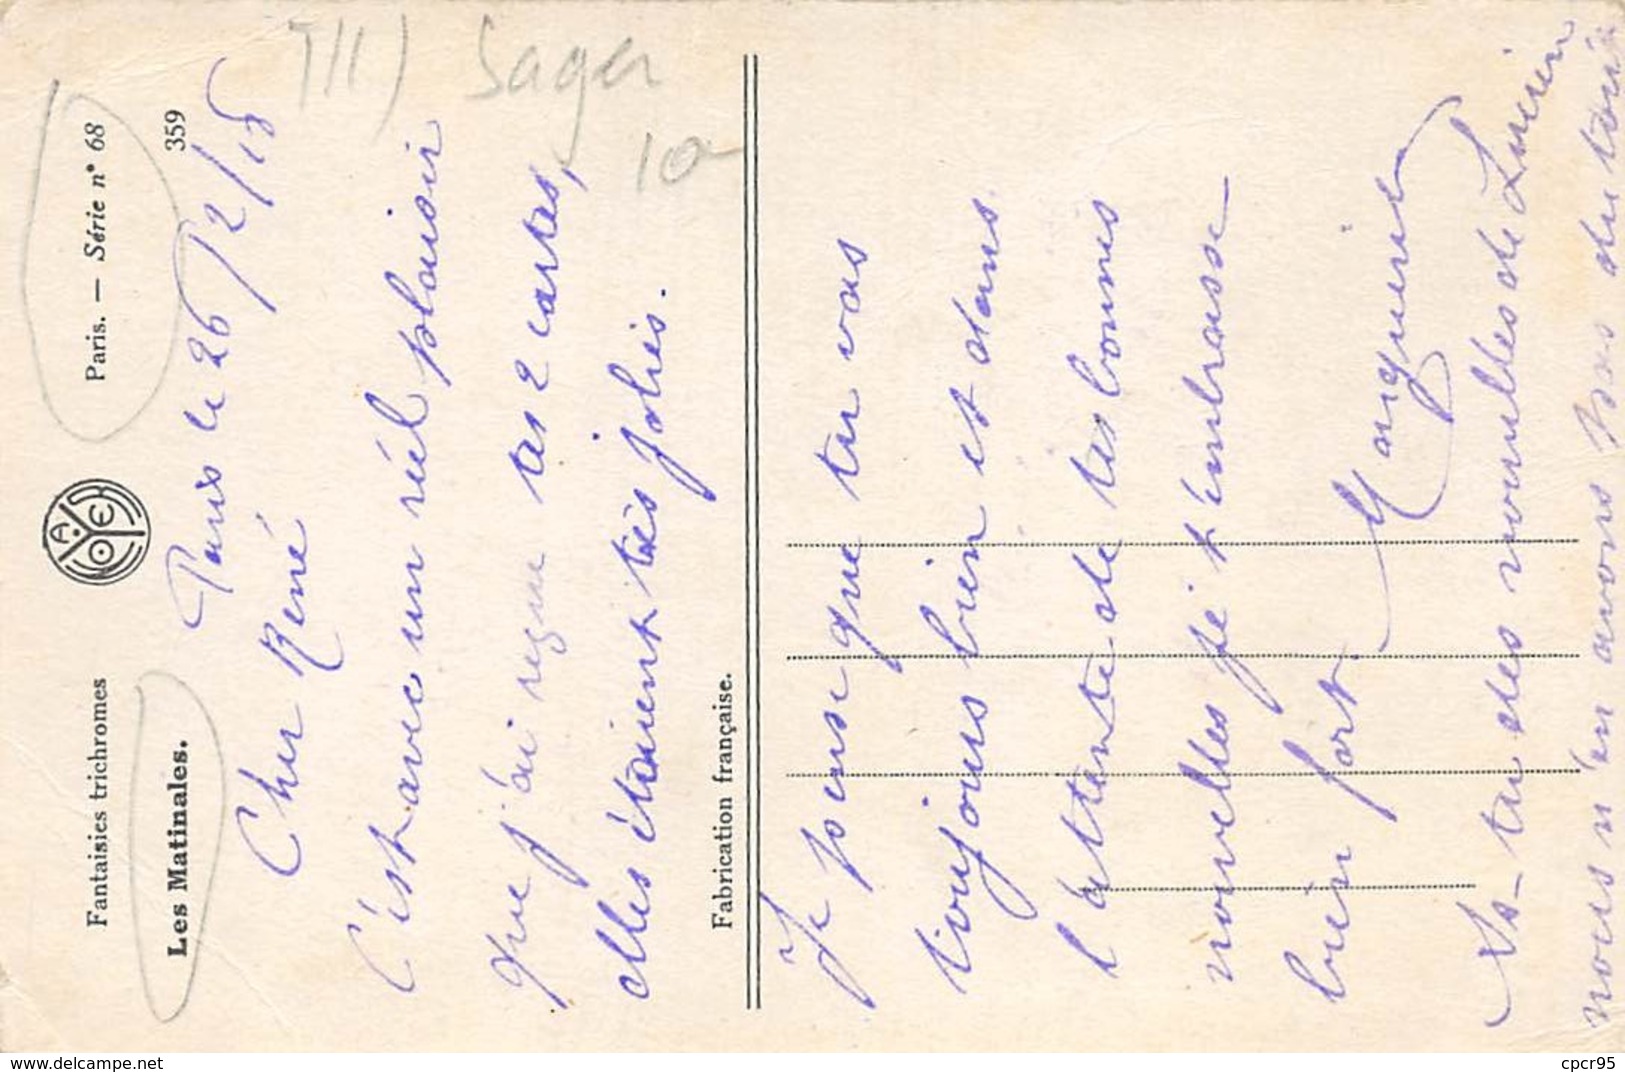 Fantaisies trichromes
Paris. — Série n° 68
Les Matinales.
359
Sager
10
Paris le 26/2/18
Cher René
C'est avec un réel plaisir
que j'ai reçue tes 2 cartes,
elles étaient très jolies.
Fabrication française.
Je pense que tu vas
toujours bien et dans
l'attente de tes bonnes
nouvelles je t'embrasse
bien fort Marguerite
As-tu des nouvelles de Lucien
nous n'en avons pas du tout
www.delcampe.net
cpcr95